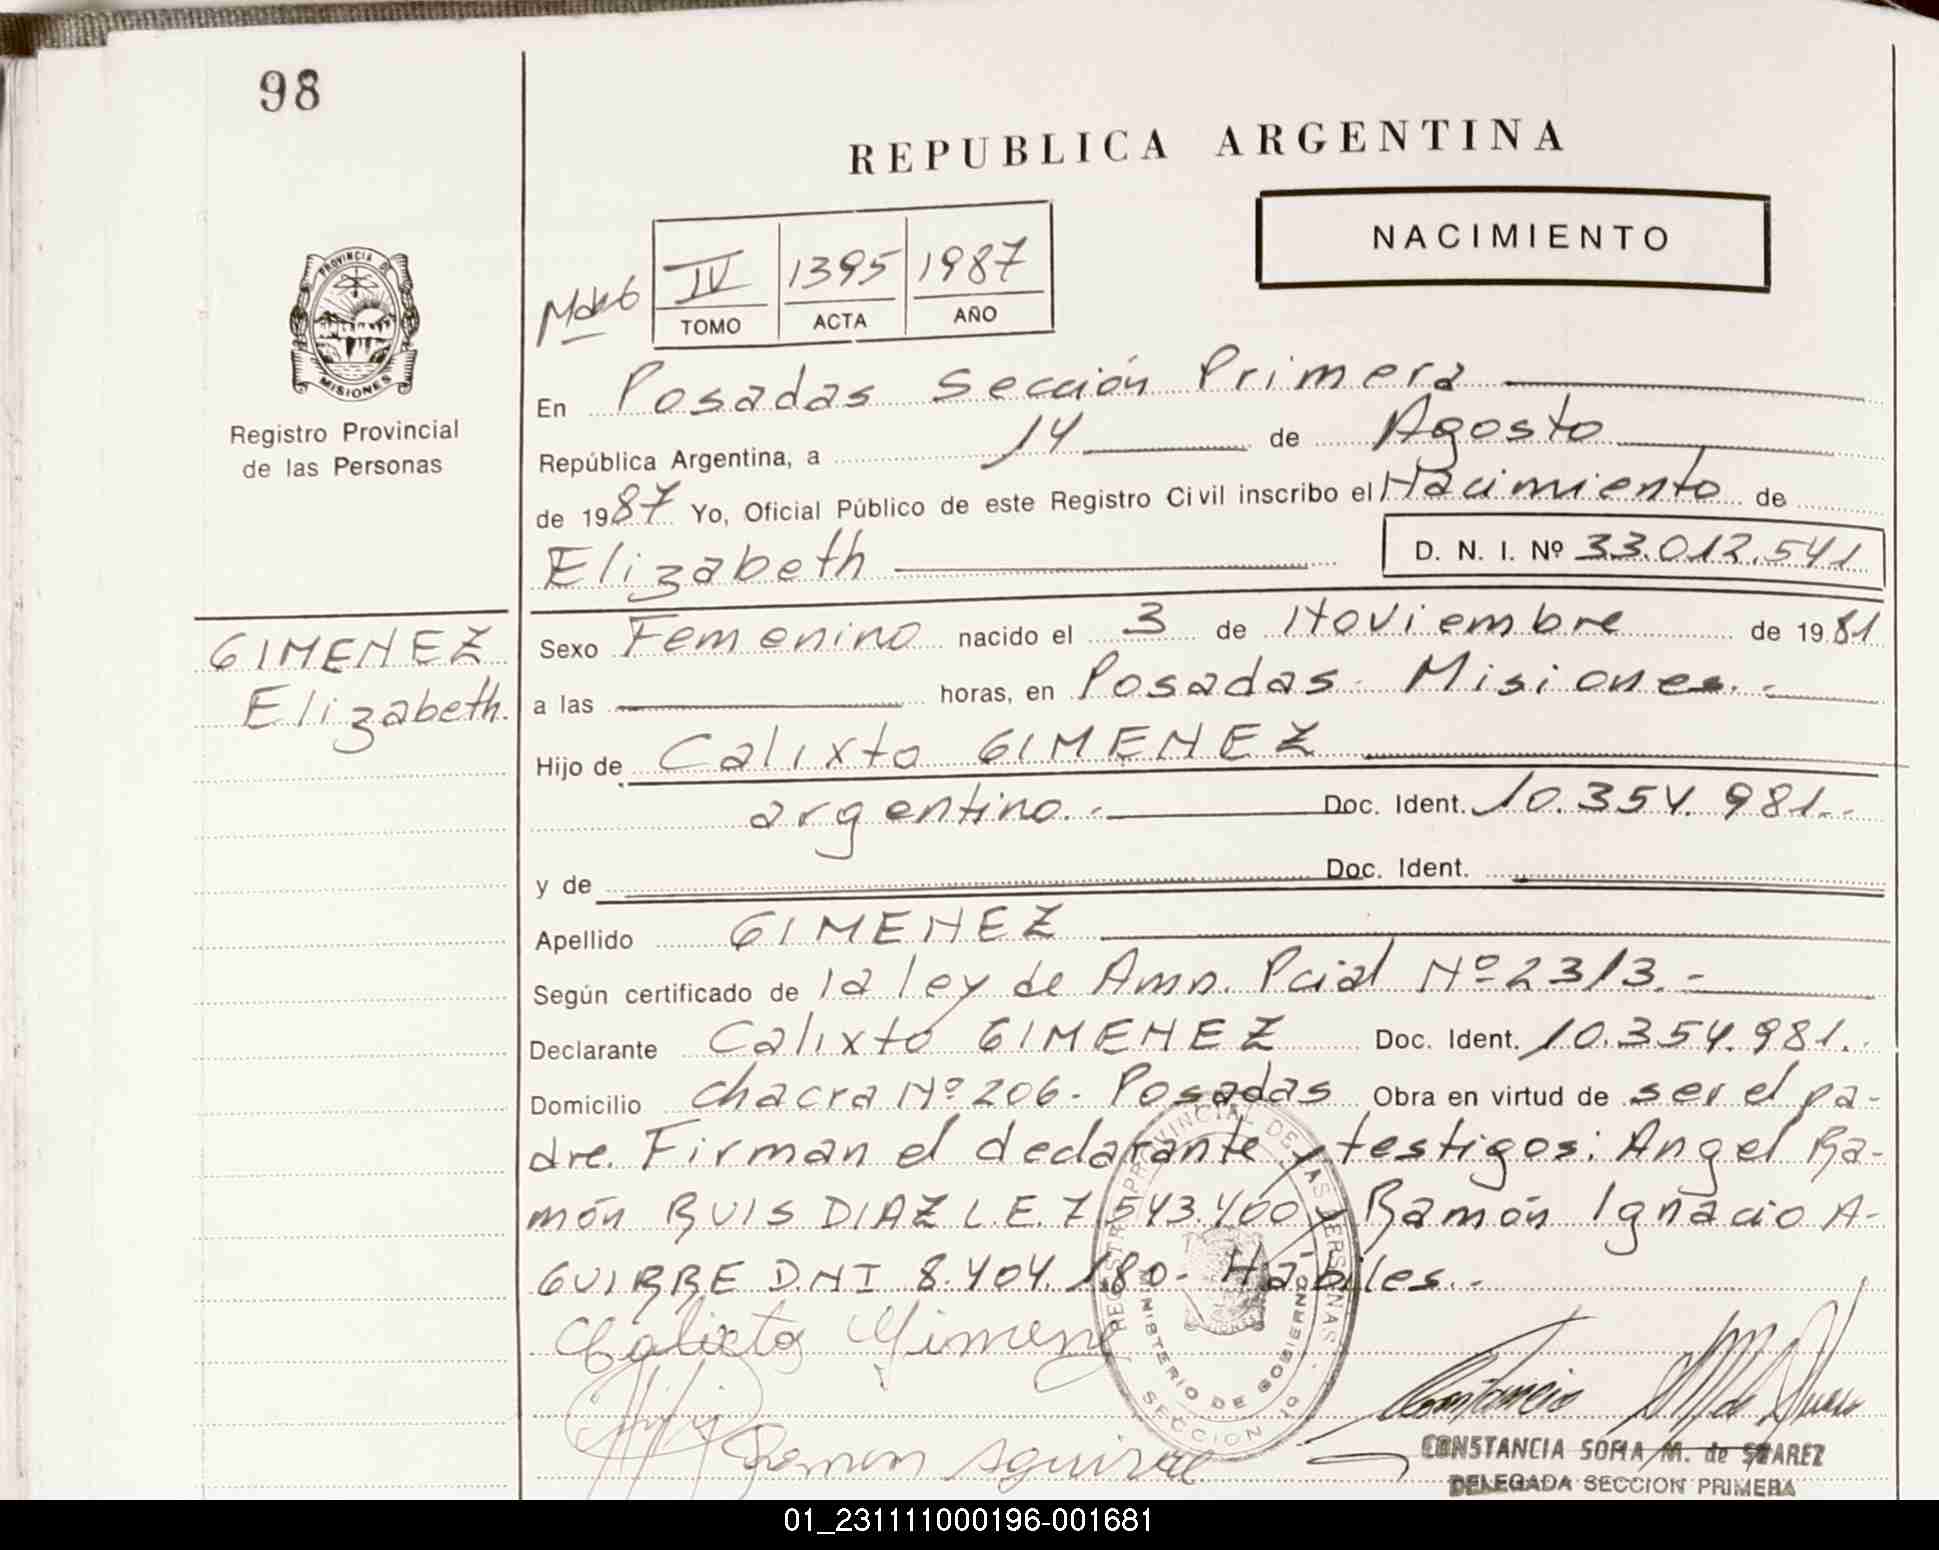 98
REPUBLICA ARGENTINA
NACIMIENTO
IV 1395 1987
TOMO ACTA AÑO
PROVINCIA DE
MISIONES
Registro Provincial
de las Personas
En Posadas Sección Primera
República Argentina, a 14 de Agosto
de 1987 Yo, Oficial Público de este Registro Civil inscribo el Nacimiento de
Elizabeth D. N. I. Nº 33.012.541
GIMENEZ
Elizabeth.
Sexo Femenino nacido el 3 de Noviembre de 1981
a las horas, en Posadas - Misiones.-
Hijo de Calixto GIMENEZ
argentino.- Doc. Ident. 10.354.981.-
y de Doc. Ident.
Apellido GIMENEZ
Según certificado de la ley de Amn. Pcial Nº 2313.-
Declarante Calixto GIMENEZ Doc. Ident. 10.354.981.-
Domicilio chacra Nº 206- Posadas Obra en virtud de ser el pa-
dre. Firman el declarante y testigos: Angel Ra-
món RUIS DIAZ L.E. 7.543.400 y Ramón Ignacio A-
GUIRRE D.N.I 8.404.180- Hábiles.-
REGISTRO PROVINCIAL DE LAS PERSONAS
MINISTERIO DE GOBIERNO
SECCION 1º
Calixto Gimenez
Ramon Aguirre
CONSTANCIA SOFIA M. de SUAREZ
DELEGADA SECCION PRIMERA
01_231111000196-001681